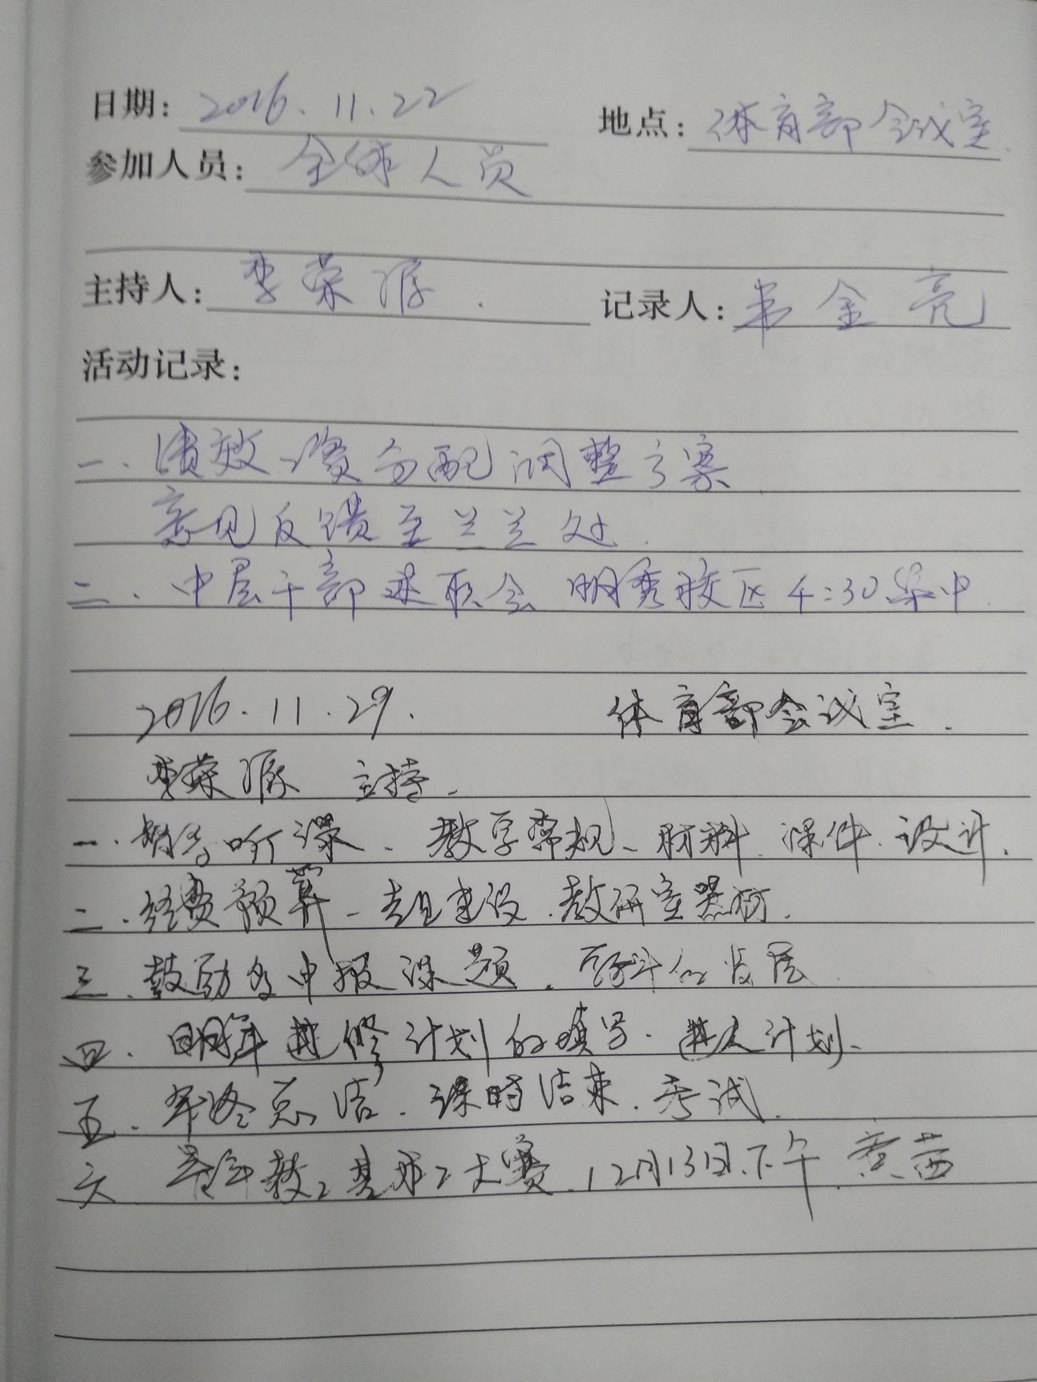 日期: 2016.11.22 地点: 体育部会议室.
参加人员: 全体人员
主持人: 李荣源. 记录人: 韦金亮
活动记录:
一.绩效工资分配调整方案
意见反馈至兰兰处.
二.中层干部述职会 明秀校区4:30集中
2016.11.29. 体育部会议室.
李荣源 主持.
一.督导听课、教学常规、材料.课件.设计.
二.经费预算、支建设.教研室器材.
三.鼓励多申报课题.的发展.
四.明年进修计划的填写.进人计划.
五.年终总结.课时结束.考试.
六 青年教工基本功大赛.12月13日下午.黄茜